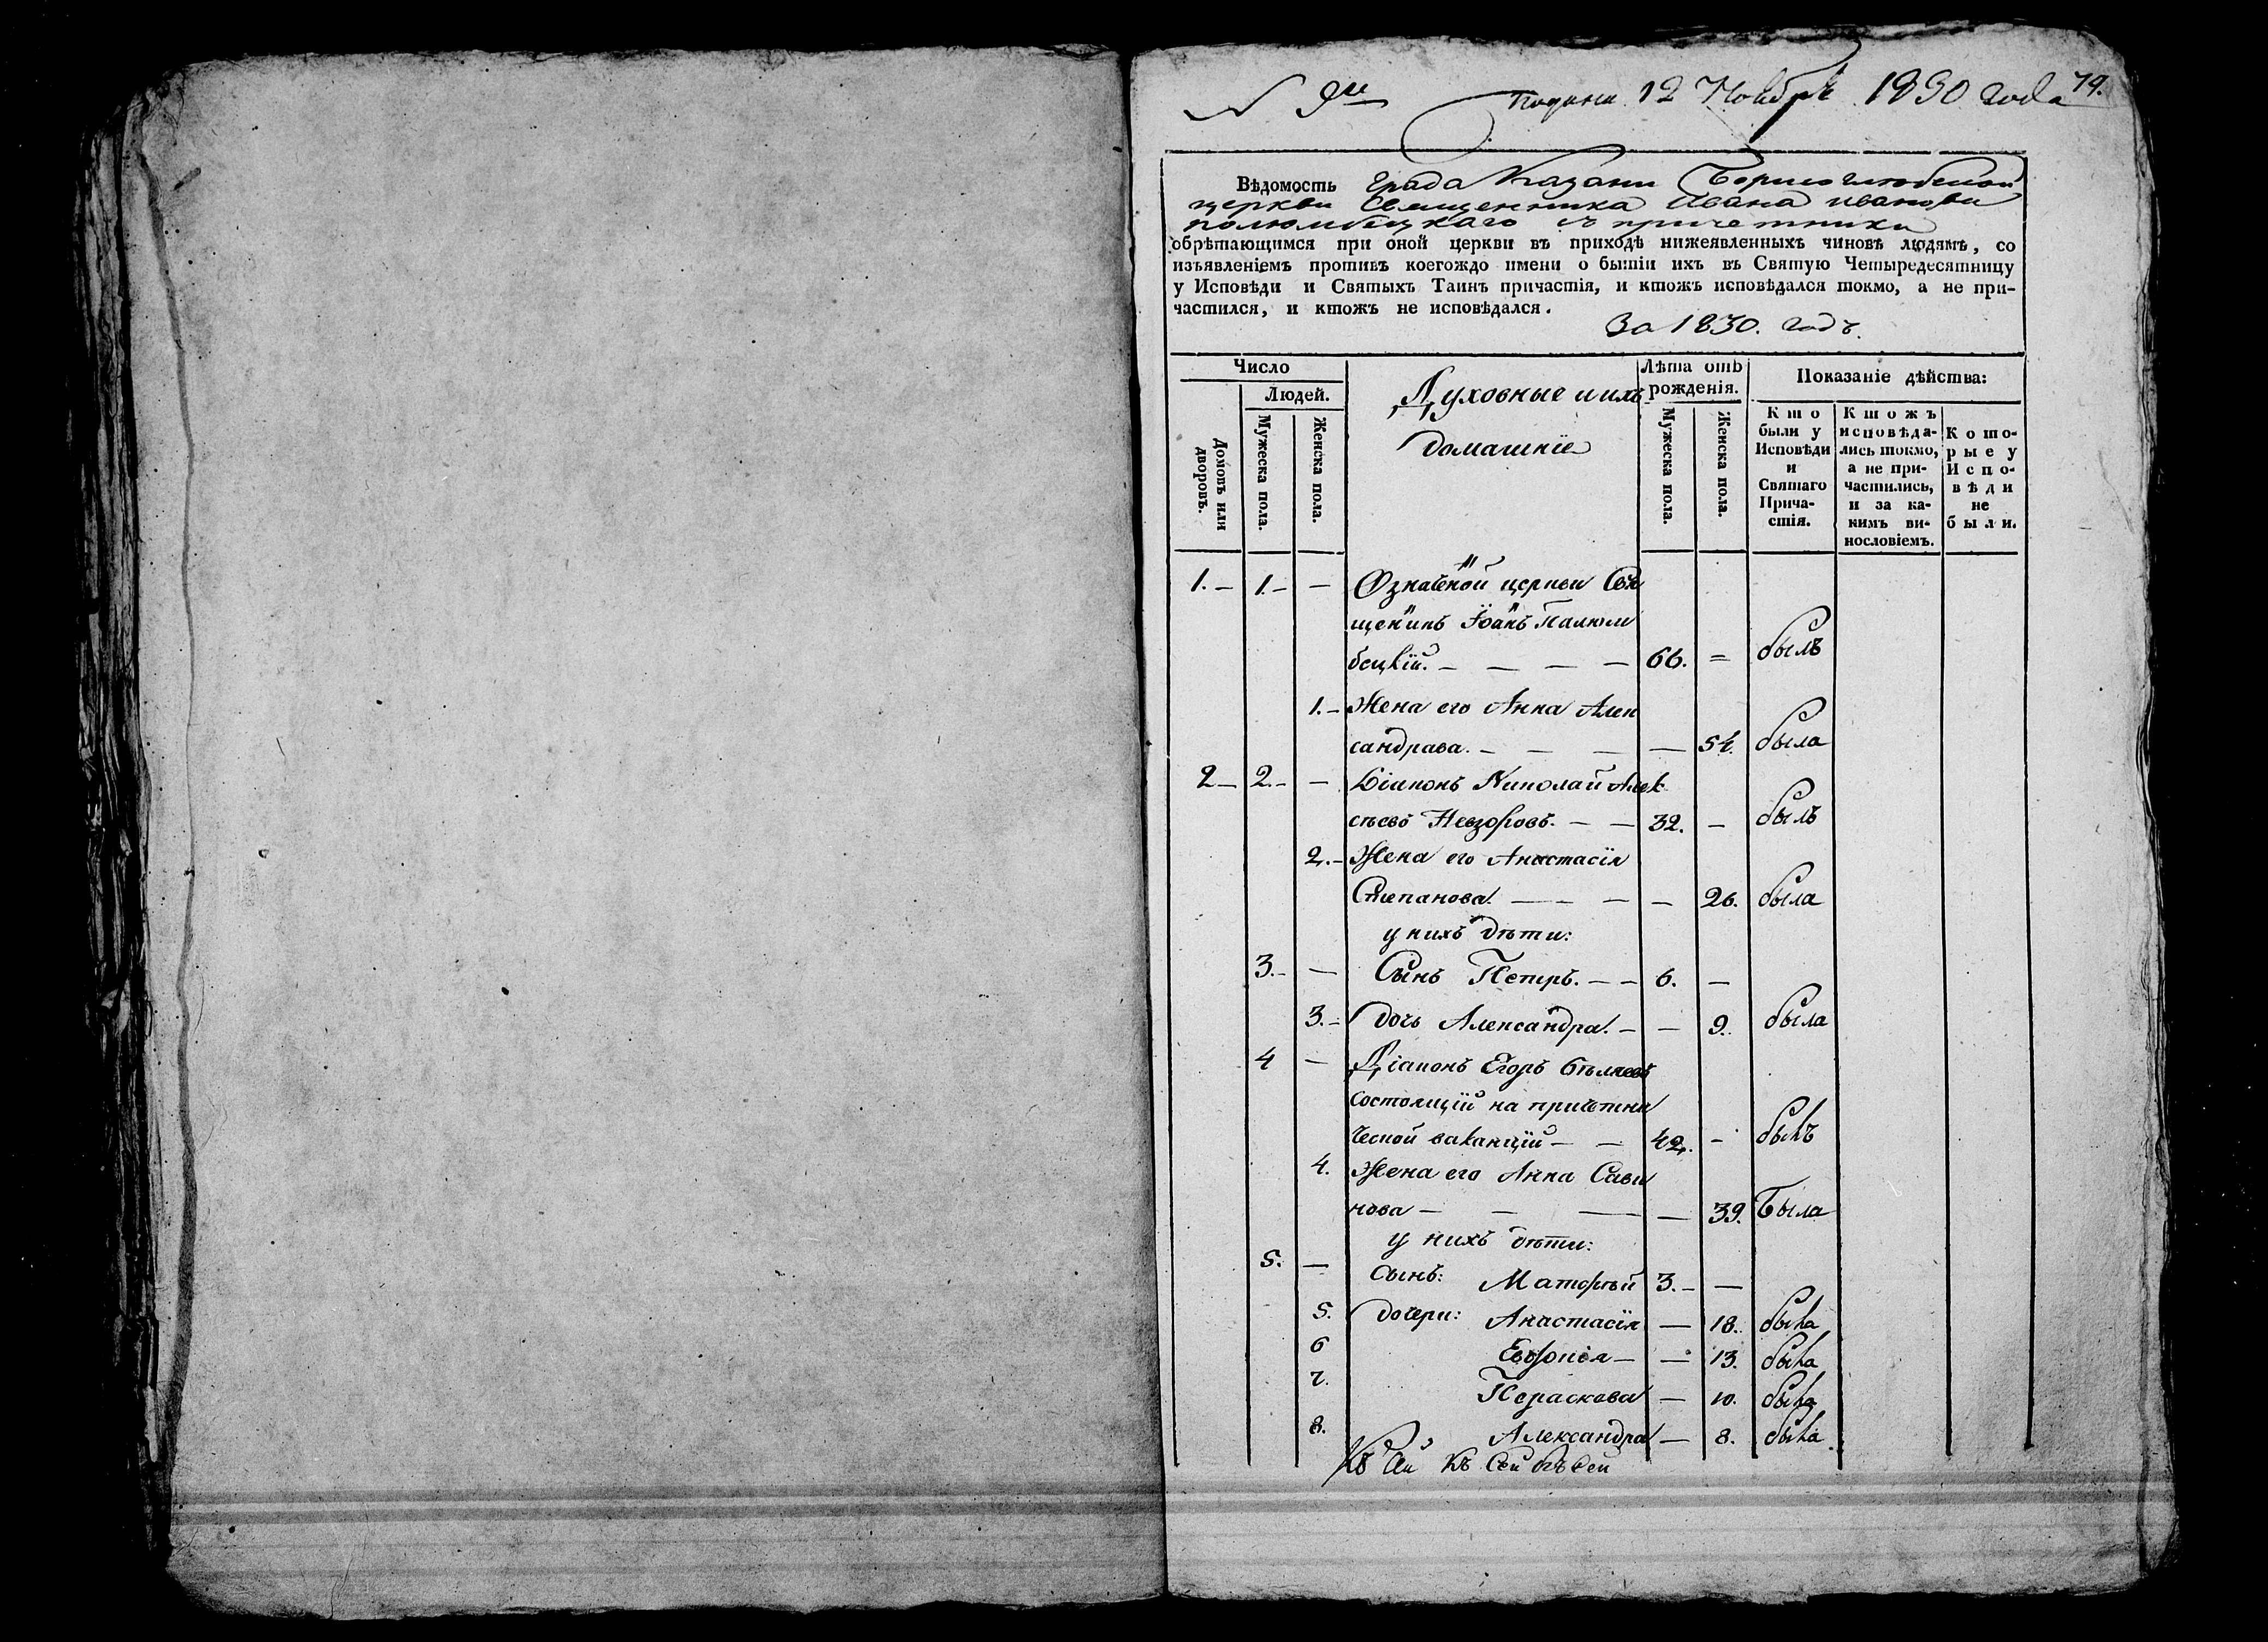 N 9й подана 12 Ноября 1830 года 79.
Вѣдомость Града Казани Борисоглебской
церкви Священника Ивана Иванова
Полюмбецкаго с причетники
обрѣтающимся при оной церкви въ приходѣ нижеявленныхъ чиновъ людямъ, со
изъявленіемъ противъ коегождо имени о бытіи ихъ въ Святую Четыредесятницу
у Исповѣди и Святыхъ Таинъ причастія, и ктожъ исповѣдался токмо, а не при-
частился, и ктожъ не исповѣдался.
За 1830. годъ.
Число
Людей.
Домовъ или дворовъ.
Мужеска пола.
Женска пола.
Духовные и ихъ
домашніе
Лѣта отъ
рожденія.
Мужеска пола.
Женска пола.
Показаніе дѣйства:
Кто
были у
Исповѣди
и
Святаго
Прича-
стія.
Ктожъ
исповѣда-
лись токмо,
а не при-
частились,
и за ка-
кимъ ви-
нословіемъ.
Кото-
рые у
Испо-
вѣди
не
были.
1. — 1. — — Означеной церкви Свя
щеникъ Іоанъ Палюм
бецкій. — — — — 66. = былъ
1. — Жена его Анна Алек
сандрава. — — — — 54. была
2 — 2. — — Діаконъ Николай Алек
сѣевъ Невзоровъ. — — 32. — былъ
2. — Жена его Анастасія
Степанова. — — — — 26. была
у нихъ дѣти:
3. — — Сынъ Петръ. — — 6. —
3. — дочь Александра. — — 9. была
4 — Діаконъ Егоръ Бѣляевъ
состоящій на причетни
ческой ваканціи — — 42. — былъ
4. Жена его Анна Сави
нова — — — — 39. Была
у нихъ дѣти:
5. — сынъ: Матфѣй 3. — —
5. дочери: Анастасія — 18. была
6 Евфонія — — 13. была
7. Параскева — 10. была
8. Александра — 8. была